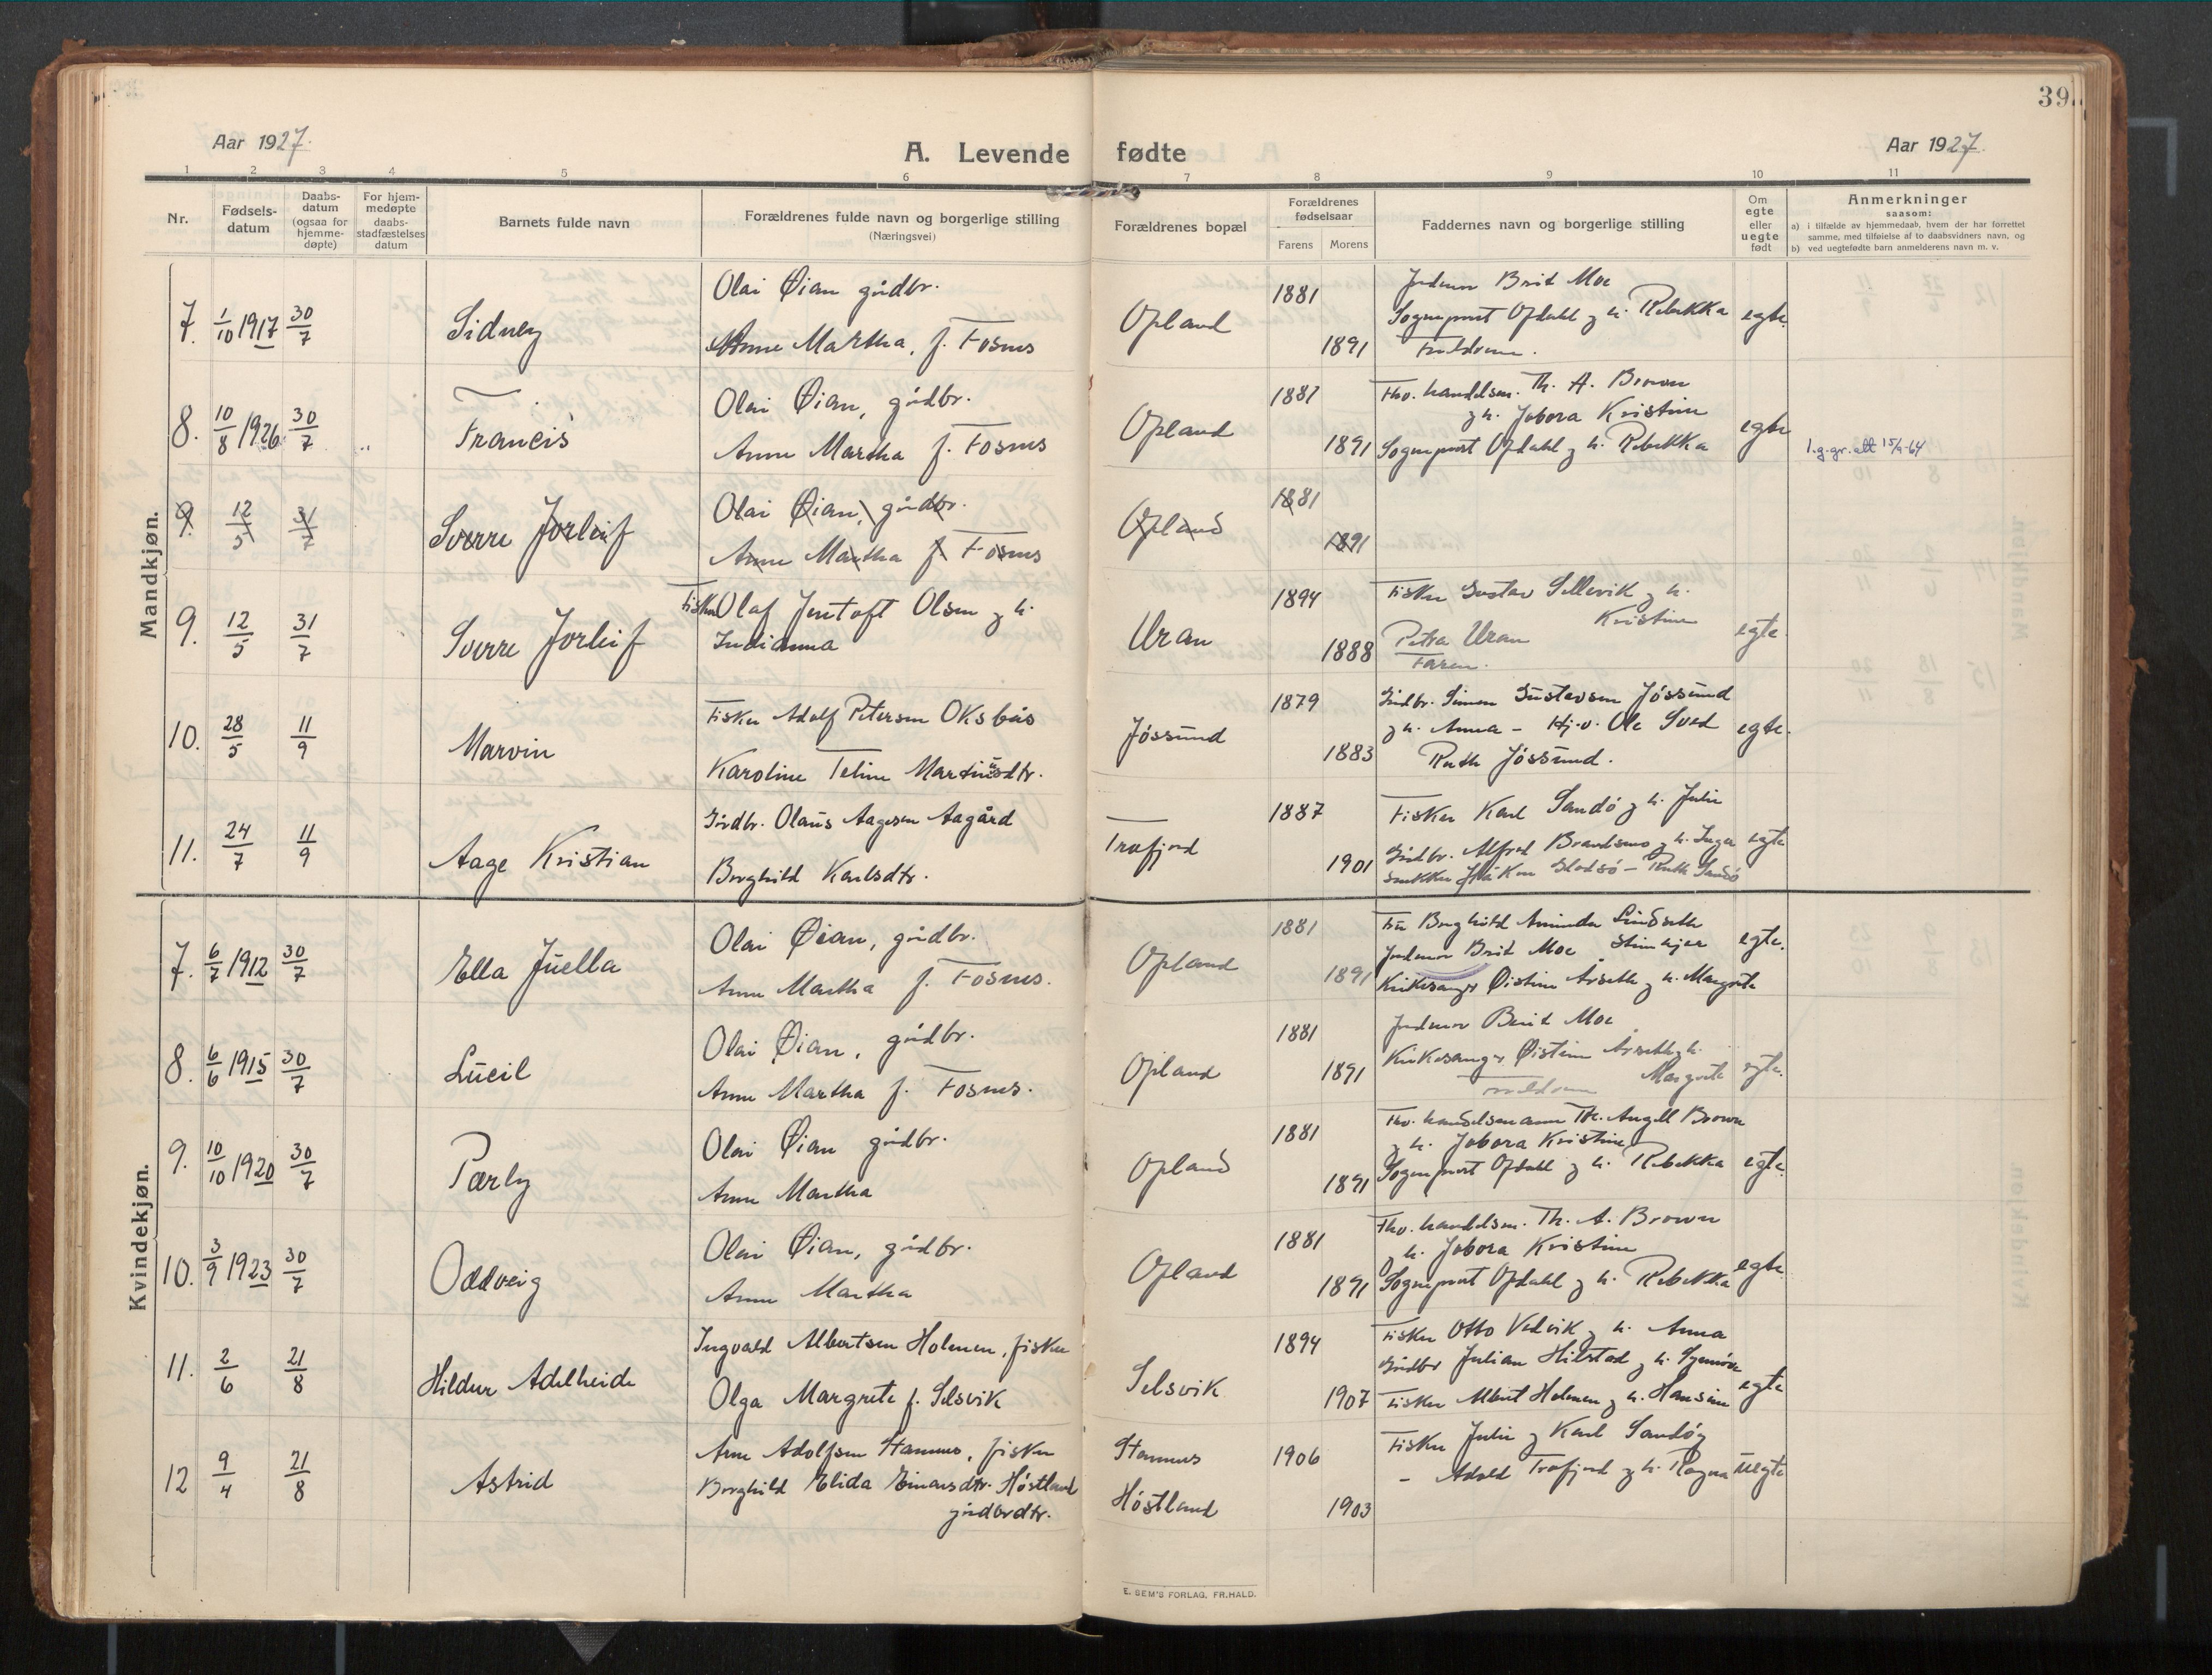 39.
Aar 1927.
A. Levende fødte
Aar 1927.
1 2 3 4 5 6 7 8 9 10 11
Nr.
Fødsels-
datum
Daabs-
datum
(ogsaa for
hjemme-
døpte)
For hjem-
medøpte
daabs-
stadfæstelses
datum
Barnets fulde navn
Forældrenes fulde navn og borgerlige stilling
(Næringsvei)
Forældrenes bopæl
Forældrenes
fødselsaar
Farens Morens
Faddernes navn og borgerlige stilling
Om
egte
eller
uegte
født
Anmerkninger
saasom:
a) i tilfælde av hjemmedaab, hvem der har forrettet
samme, med tilføielse af to daabsvidners navn, og
b) ved uegtefødte barn anmelderens navn m. v.
Mandkjøn.
7. 1/10 1917 30/7 Sidney
Olai Øian gårdbr.
Anne Martha, f. Fosnes
Opland 1881 1891
Jordmor Brit Moe
Sogneprest Opdahl og h. Rebekka
Foreldrene.
egte.
8. 10/8 1926 30/7 Francis
Olai Øian, gårdbr.
Anne Martha f. Fosnes
Opland 1881 1891
Fhv. handelsm. Th. A. Brown
og h. Jobora Kristine
Sogneprest Opdahl og h. Rebekka
egte
9. 12/5 31/7 Sverre Jorleif
Olai Øian, gårdbr.
Anne Martha f. Fosnes
Opland 1881 1891
9. 12/5 31/7 Sverre Jorleif
Fisker Olaf Jentoft Olsen og h.
Indianna
Uran 1894 1888
Fisker Gustav Sellevik og h.
Kristine
Petra Uran
Faren.
egte.
10. 28/5 11/9 Marvin
Fisker Adolf Petersen Oksbås
Karoline Teline Martinusdtr.
Jøssund 1879 1883
Gårdbr. Simon Gustavsen Jøssund
og h. Anna - Hj.v. Ole Sved
Ruth Jøssund.
egte.
11. 24/7 11/9 Aage Kristian
Gårdbr. Olaus Aagesen Aagård
Borghild Karlsdtr.
Trafjord 1887 1901
Fisker Karl Sandø og h. Julie
Gårdbr. Alfred Brandsmo og h. Inga
Snekker Håkon Gladsø - Ruth Sandø
egte
Kvindekjøn.
7. 6/7 1912 30/7 Ella Juella
Olai Øian, gårdbr.
Anne Martha f. Fosnes.
Opland 1881 1891
Fru Borghild Aminda Lindseth
Jordmor Brit Moe Steinkjer
Kirkesanger Øistein Årseth og h. Margrete
egte.
8. 6/6 1915 30/7 Lucil
Olai Øian, gårdbr.
Anne Martha f. Fosnes.
Opland 1881 1891
Jordmor Berit Moe
Kirkesanger Øistein Årseth og h.
Margrete
Foreldrene
egte.
9. 10/10 1920 30/7 Pærly
Olai Øian gårdbr.
Anne Martha
Opland 1881 1891
Fhv. handelsmann Th. Angell Brown
og h. Jobora Kristine
Sogneprest Opdahl og h. Rebekka
egte.
10. 3/9 1923 30/7 Oddveig
Olai Øian, gårdbr.
Anne Martha
Opland 1881 1891
Fhv. handelsm. Th. A. Brown
og h. Jobora Kristine
Sogneprest Opdahl og h. Rebekka
egte.
11. 2/6 21/8 Hildur Adelheide
Ingvald Albertsen Holmen, fisker
Olga Margrete f. Selsvik
Selsvik 1894 1907
Fisker Otto Vedvik og h. Anna
Gårdbr Julian Hilstad og h. Synnøve
Fisker Albert Holmen og h. Hansine
egte
12 9/4 21/8 Astrid
Arne Adolfsen Stamnes, fisker
Borghild Elida Einarsdtr. Høstland
gårdbrdtr.
Stamnes 1906
Høstland 1903
Fisker Julie og Karl Sandøy
- Adolf Trafjord og h. Ragna
uegte
E. SEM'S FORLAG, FR.HALD.